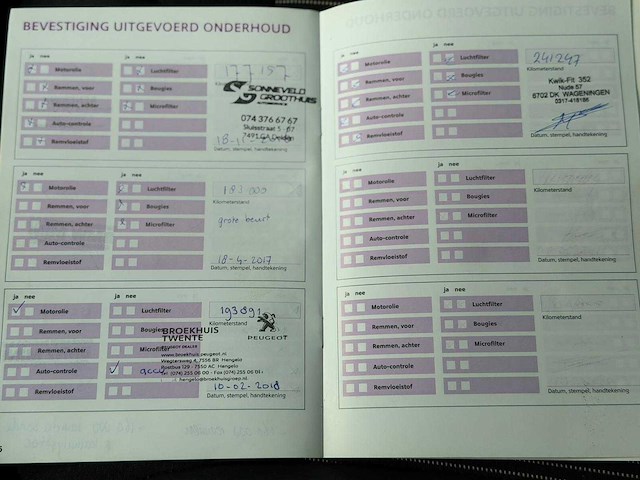 BEVESTIGING UITGEVOERD ONDERHOUD
ja nee ja nee
Motorolie Luchtfilter
177157
Remmen, voor Bougies
Kilometerstand
Remmen, achter Microfilter
SONNEVELD
GROOTHUIS
Auto-controle
074 376 67 67
Sluisstraat 5 - 67
Remvloeistof
Datum, stempel, handtekening
ja nee ja nee
Motorolie Luchtfilter
183 000
Kilometerstand
Remmen, voor Bougies
Remmen, achter Microfilter
grote beurt
Auto-controle
Remvloeistof
18-4-2017
Datum, stempel, handtekening
ja nee ja nee
Motorolie Luchtfilter
193891
Kilometerstand
Remmen, voor Bougies
BROEKHUIS
TWENTE
PEUGEOT
Remmen, achter Microfilter
PEUGEOT DEALER
www.broekhuis.peugeot.nl
Wegtersweg 4, 7556 BR Hengelo
Postbus 129 - 7550 AC Hengelo
Auto-controle accu
hengelo@broekhuisgroep.nl
Remvloeistof
10-02-2018
Datum, stempel, handtekening
ja nee ja nee
Motorolie Luchtfilter
241247
Kilometerstand
Remmen, voor Bougies
Kwik-Fit 352
Nude 57
Remmen, achter Microfilter
6702 DK WAGENINGEN
0317-418186
Auto-controle
Remvloeistof
Datum, stempel, handtekening
ja nee ja nee
Motorolie Luchtfilter
Kilometerstand
Remmen, voor Bougies
Remmen, achter Microfilter
Auto-controle
Remvloeistof
Datum, stempel, handtekening
ja nee ja nee
Motorolie Luchtfilter
Kilometerstand
Remmen, voor Bougies
Remmen, achter Microfilter
Auto-controle
Remvloeistof
Datum, stempel, handtekening